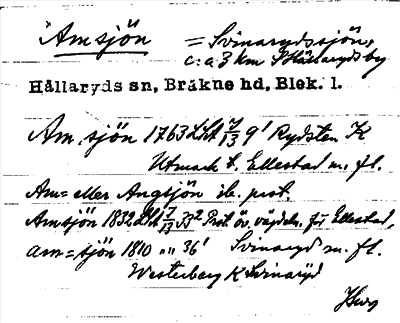 Amsjön = Svinarydssjön,
c:a 3 km S Hällaryds by
Hällaryds sn, Bräkne hd, Blek. l.
Am sjön 1763 LSA 7/13 9' Rydsten K
Utmark t. Ellestad m. fl.
Am= eller Angsjön ib. prot.
Amsjön 1832 LSA 7/13 33² Prot öv. vägdeln. f. Ellestad,
am=sjön 1810 "" 36' Svinaryd m. fl.
Westerberg K Svinaryd